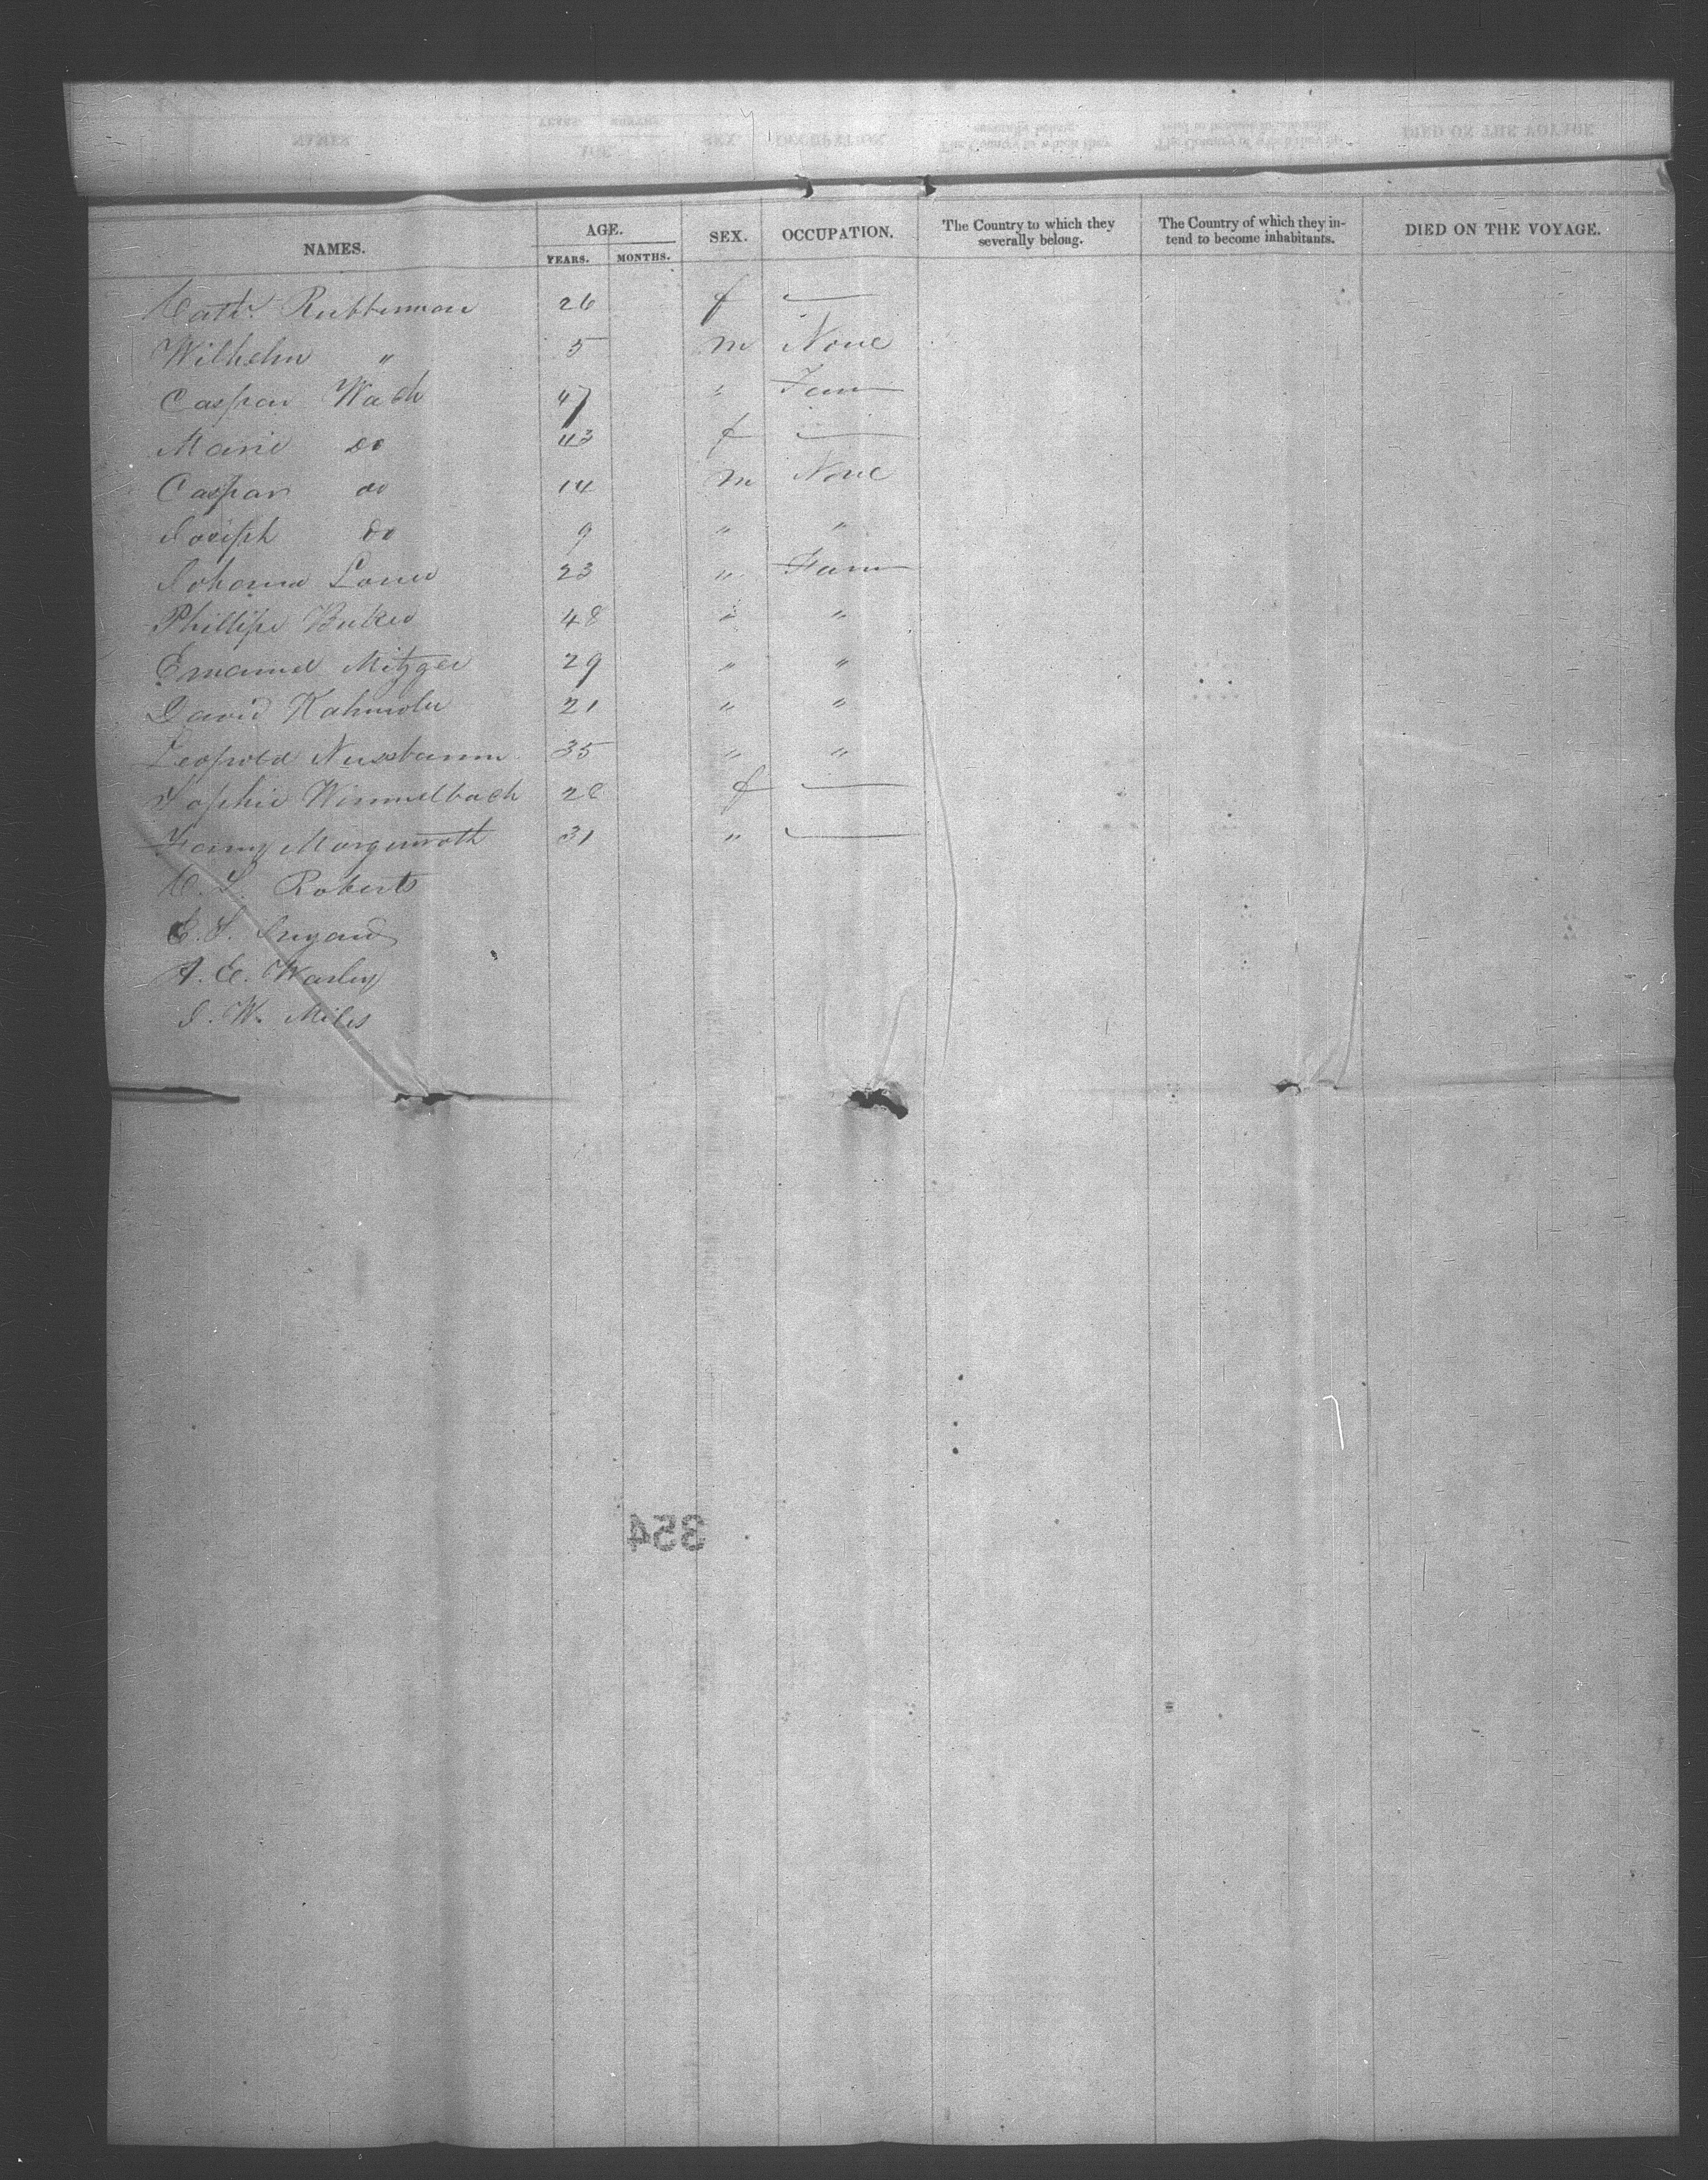 NAMES. AGE. SEX. OCCUPATION. The Country to which they severally belong. The Country of which they intend to become inhabitants. DIED ON THE VOYAGE.
YEARS. MONTHS.
Cath. 26 f —
Wilhelm " 5 m None
Caspar Wach 47 " Farm
Marie do 43 f —
Caspar do 14 m None
Joseph do 9 " "
23 " Farm
Phillipe 48 " "
Emanuel Mitzger 29 " "
David 21 " "
Leopold Nussbaum 35 " "
Sophie Wimmelbach 28 f —
Fanny Morgenroth 31 " —
C. S. Roberts
C. S.
A. E. Warley
J. W. Miles
354